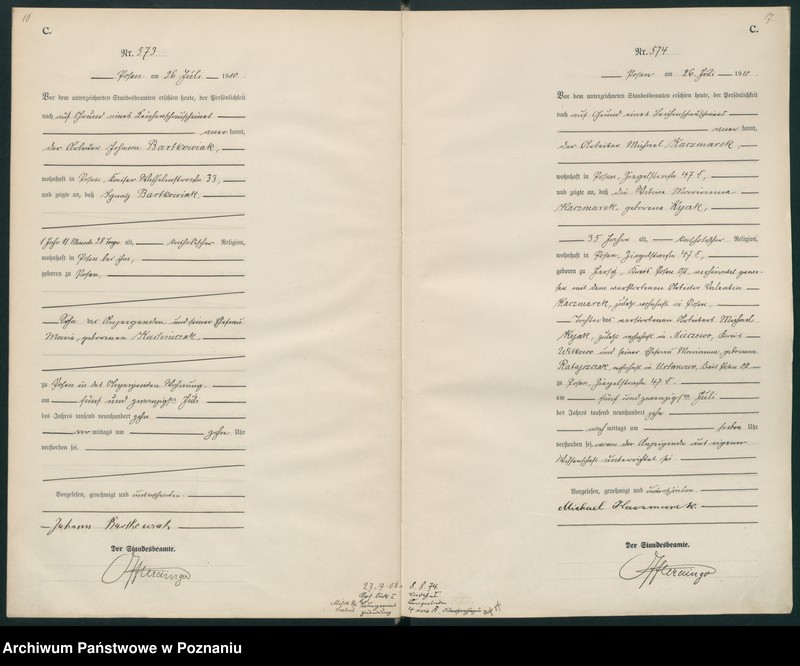 10
C.
Nr. 573
Posen am 26 Juli 1910
Vor dem unterzeichneten Standesbeamten erschien heute, der Persönlichkeit
nach auf Grund eines Leichenschauscheines
anerkannt,
der Arbeiter Johann Bartkowiak,
wohnhaft in Posen, Kaiser Wilhelmstraße 33,
und zeigte an, daß Ignatz Bartkowiak,
1 Jahr 11 Monate 28 Tage alt, katholischer Religion,
wohnhaft in Posen bei ihm,
geboren zu Posen,
Sohn des Anzeigenden und seiner Ehefrau
Maria, geborenen
zu Posen in des Anzeigenden Wohnung
am fünf und zwanzigsten Juli
des Jahres tausend neunhundert zehn
vormittags um zehn Uhr
verstorben sei.
Vorgelesen, genehmigt und unterschrieben
Johann Bartkowiak
Der Standesbeamte.
C.
Nr. 574
Posen am 26 Juli 1910
Vor dem unterzeichneten Standesbeamten erschien heute, der Persönlichkeit
nach auf Grund eines Leichenschauscheines
anerkannt,
der Arbeiter Michael Kaczmarek,
wohnhaft in Posen, Ziegelstraße 47
und zeigte an, daß die Witwe Marianna
Kaczmarek, geborene
35 Jahre alt, katholischer Religion,
wohnhaft in Posen, Ziegelstraße 47
geboren zu Kreis Posen Ost, verheiratet gewe-
sen mit dem verstorbenen Arbeiter Valentin
Kaczmarek, zuletzt wohnhaft in Posen,
Tochter des verstorbenen Arbeiters Michael
zuletzt wohnhaft in Kreis
Witkowo und seiner Ehefrau Marianna, geborenen
Ratajczak, wohnhaft in Kreis Posen Ost
zu Posen, Ziegelstraße 47
am fünf und zwanzigsten Juli
des Jahres tausend neunhundert zehn
nachmittags um sieben Uhr
verstorben sei, wovon der Anzeigende aus eigener
Wissenschaft unterrichtet sei
Vorgelesen, genehmigt und unterschrieben
Michael Kaczmarek.
Der Standesbeamte.
8.8.74.
Archiwum Państwowe w Poznaniu